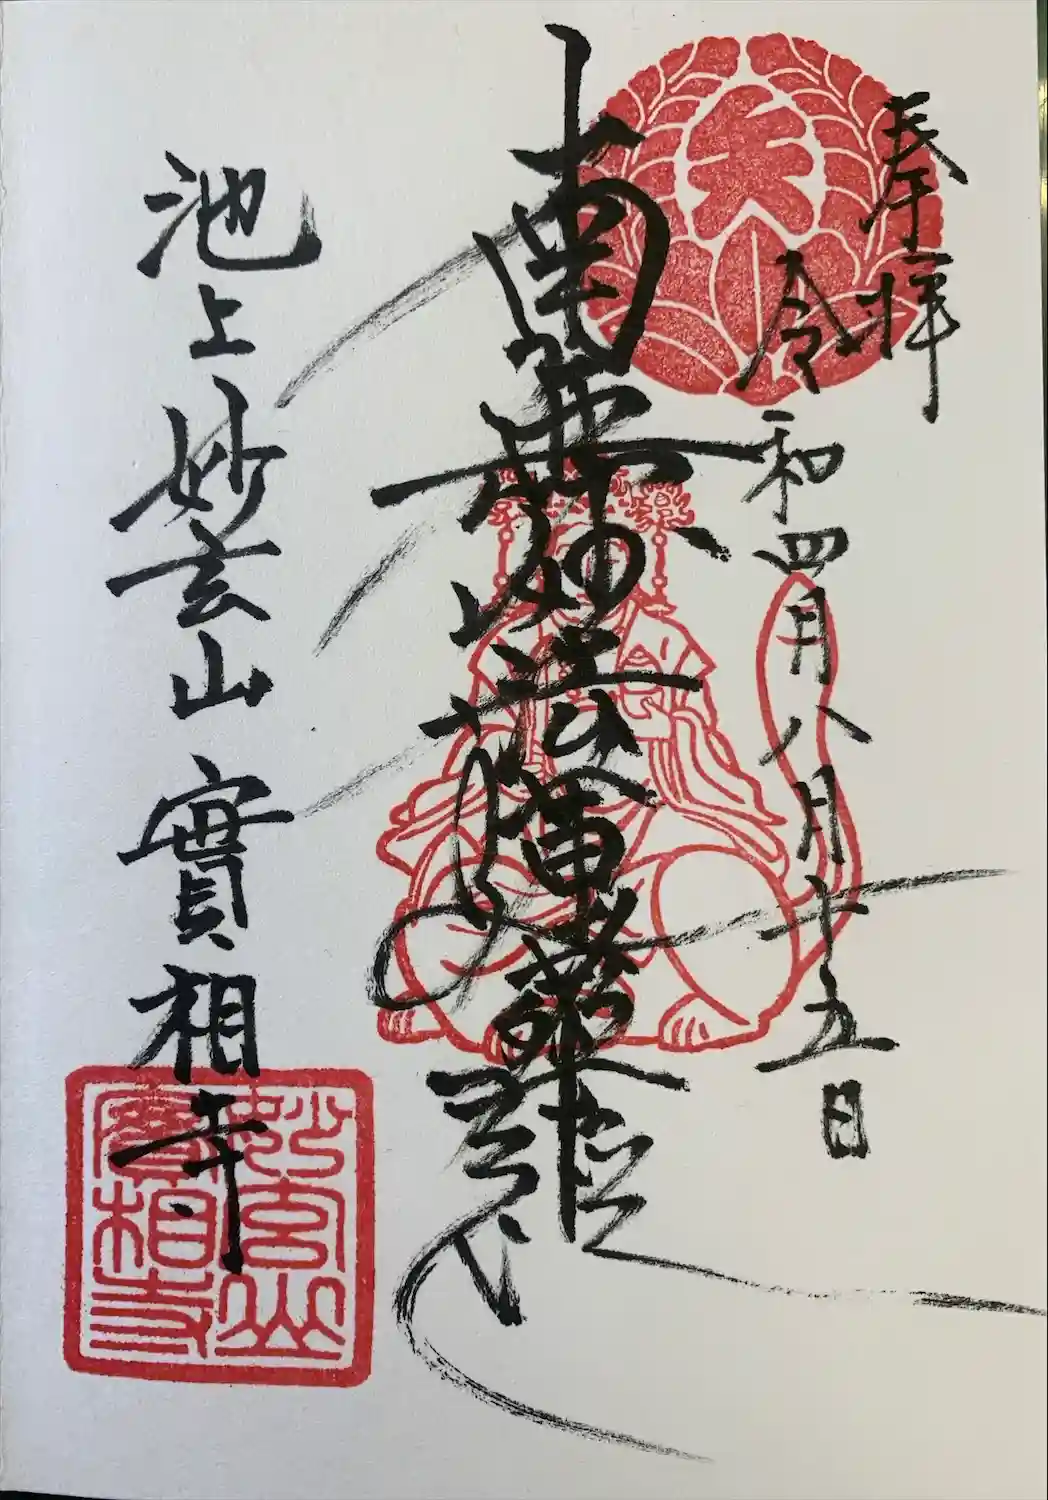 奉拝
令和四年八月十五日
南無妙法蓮華経
池上妙玄山 實相寺
妙玄山
實相寺